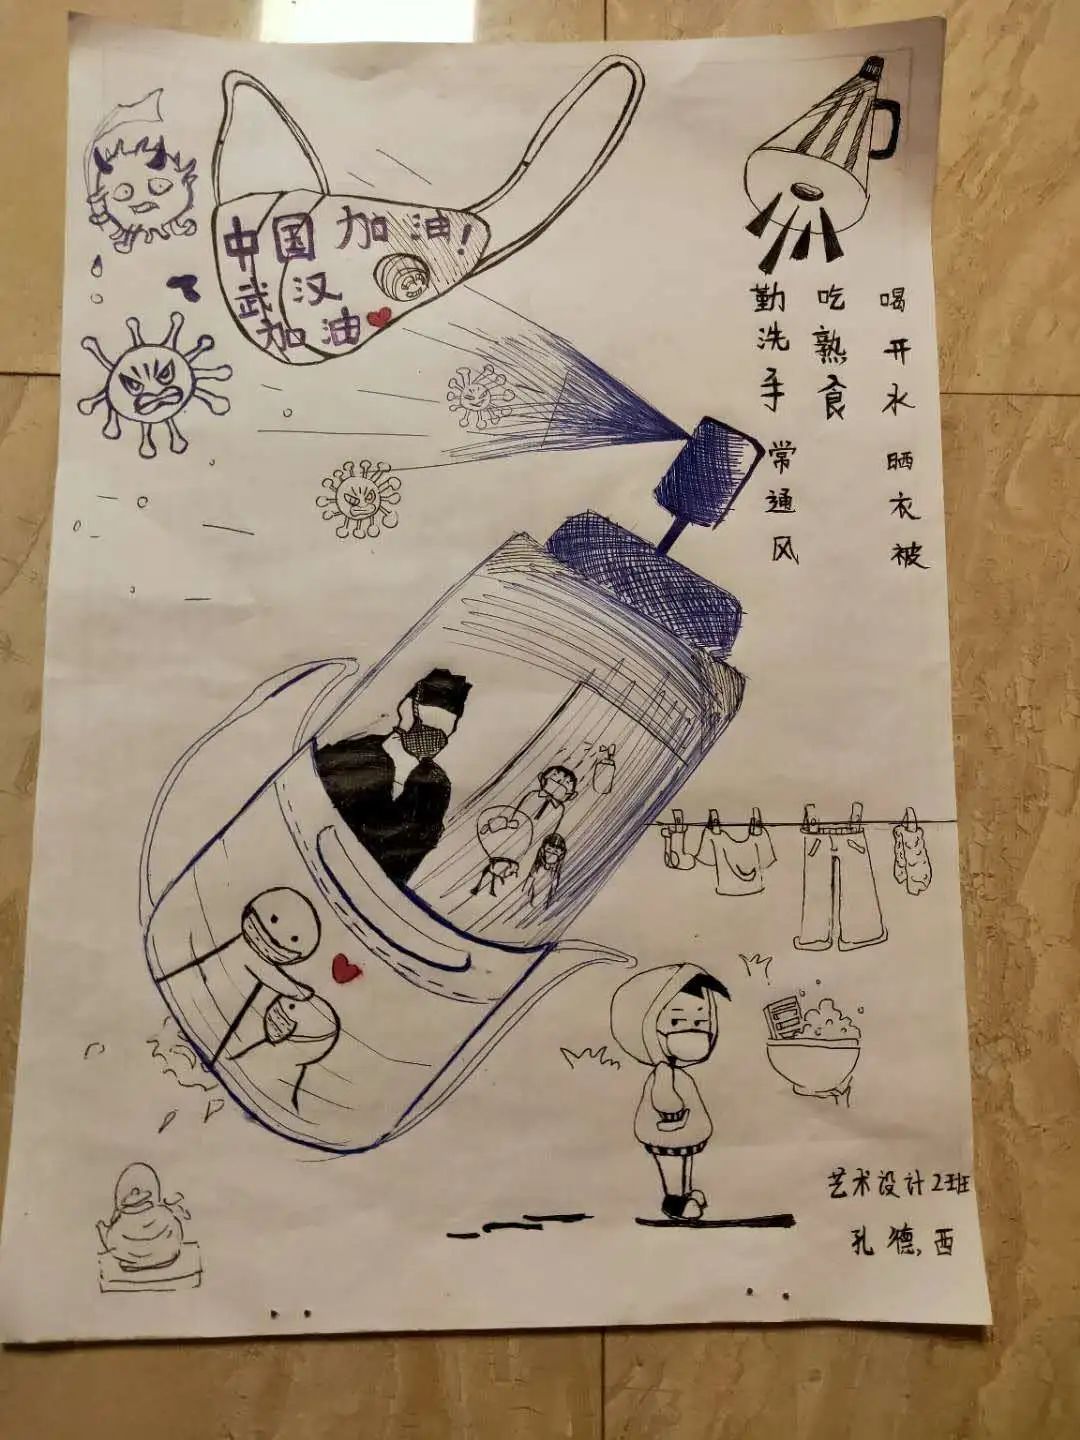 中国加油!
武汉
加油
勤洗手
吃熟食
喝开水
常通风
晒衣被
艺术设计2班
孔德西